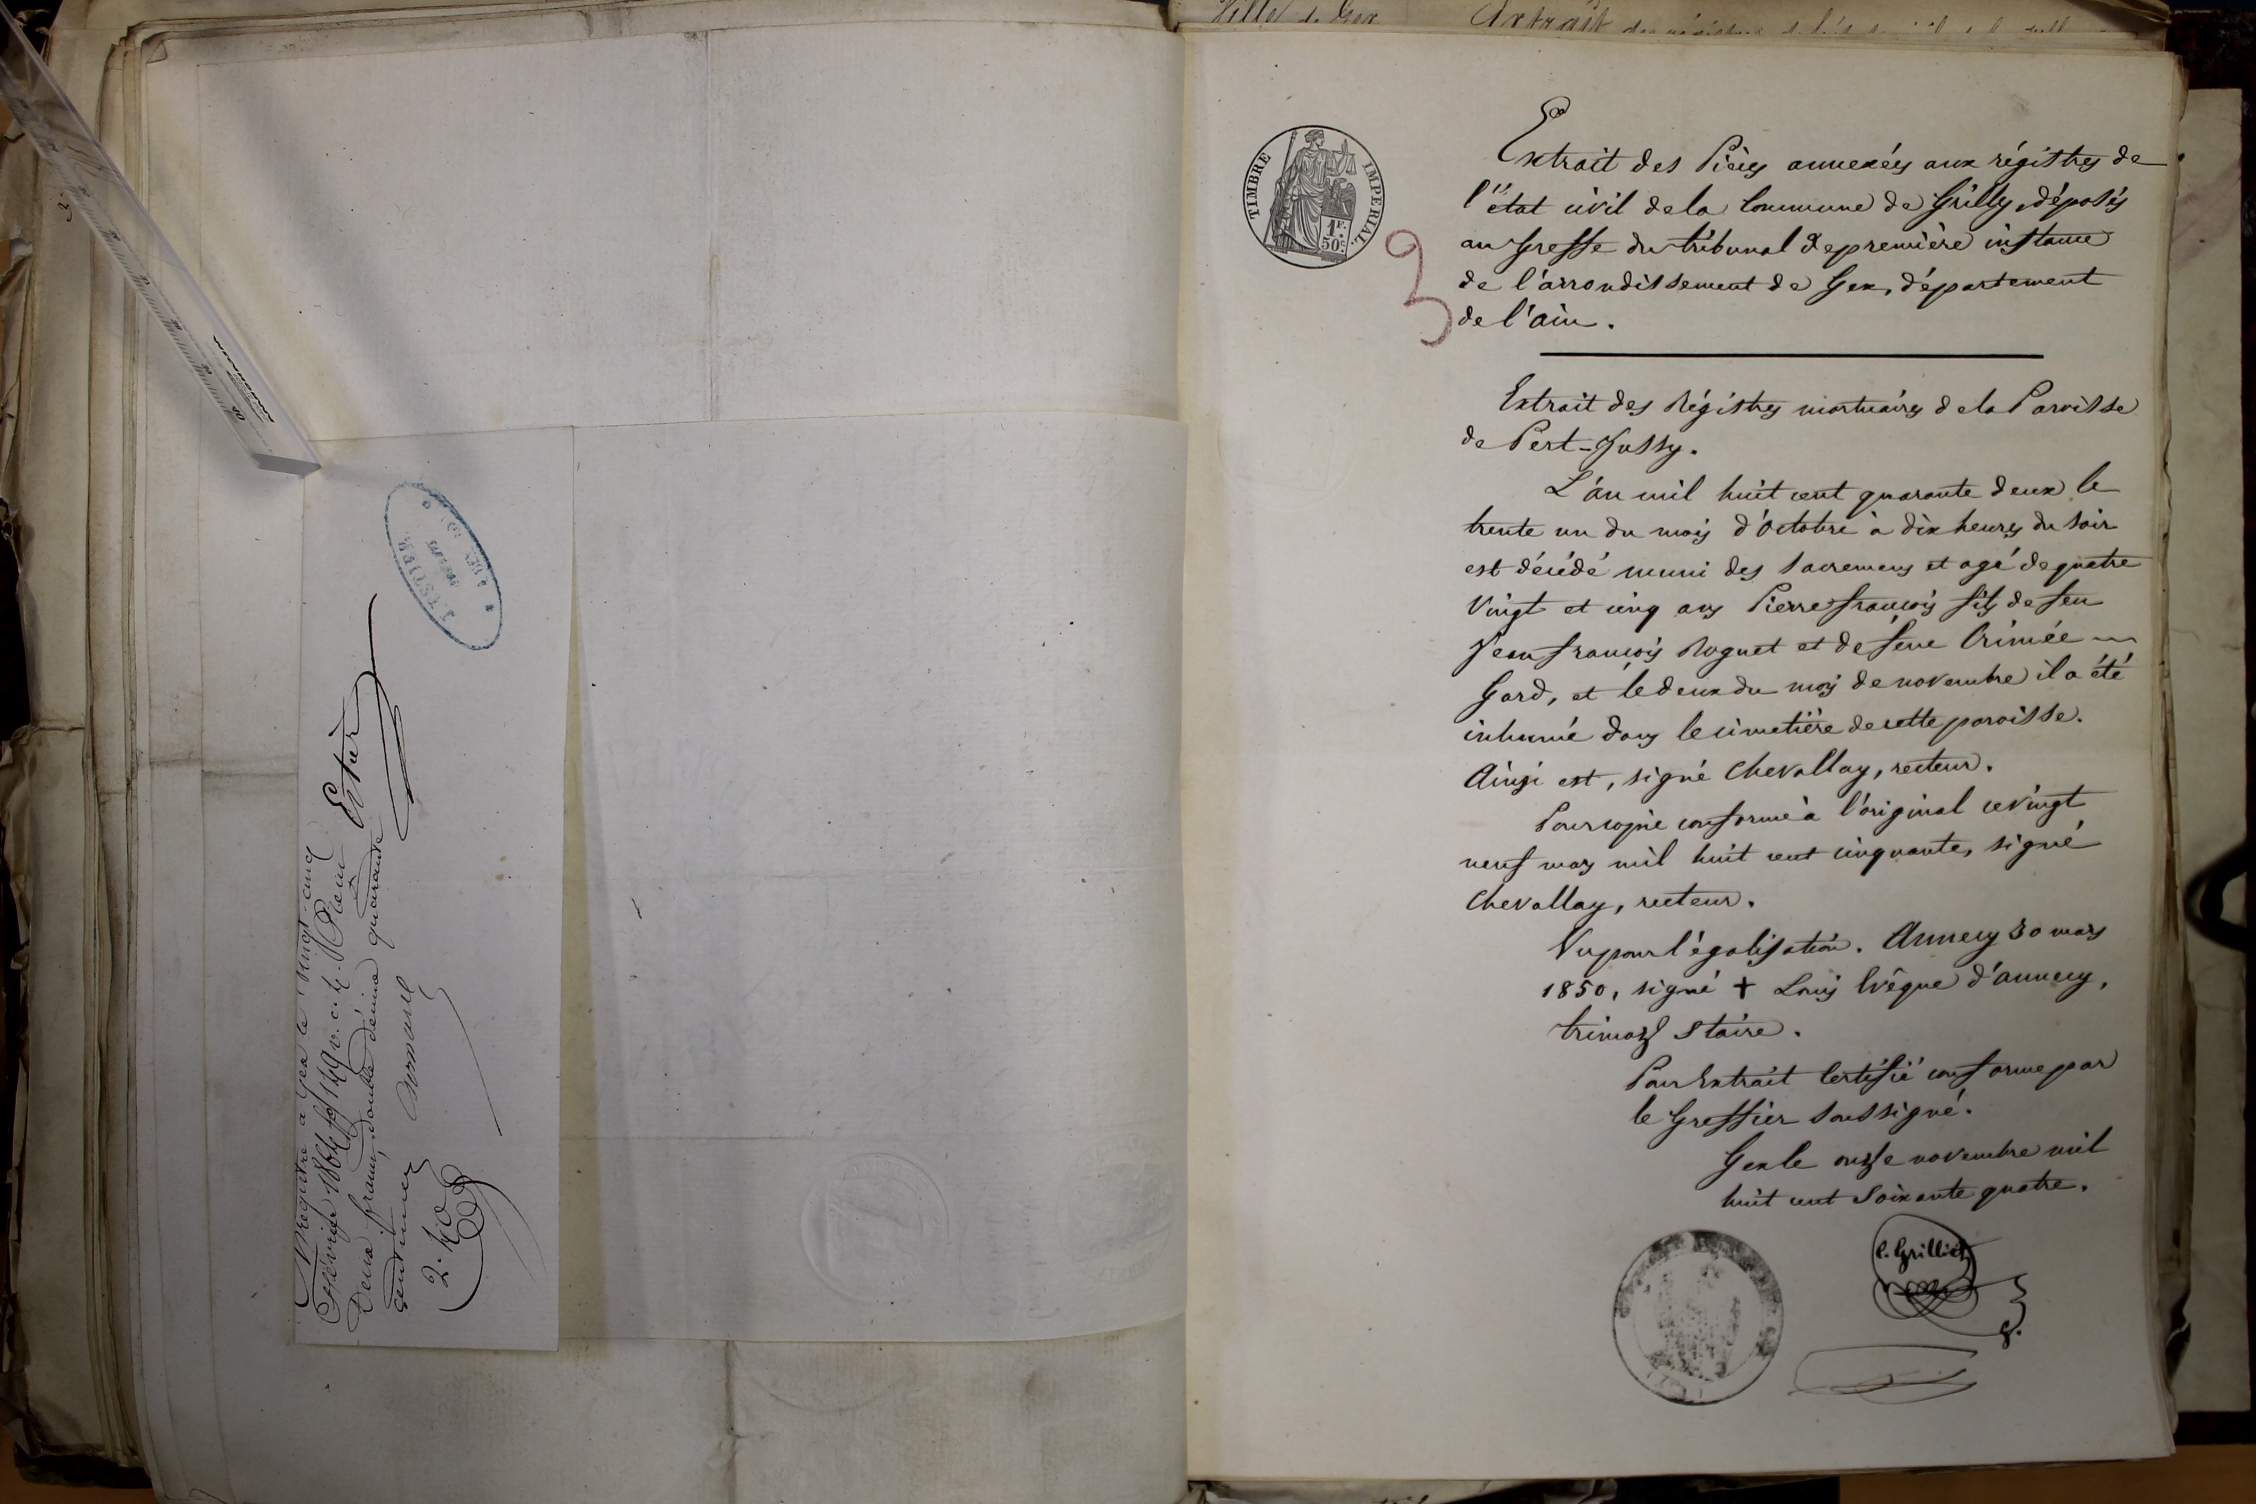 Ville de Gex Extrait des régistres de l'état civil de la ville
Enregistré à Gex le vingt-cinq
février 1864 f° 149 v. c. 4. Reçu
Deux francs, double décime quarante
centimes
2.40
TIMBRE IMPERIAL.
1F.
50c
3
Extrait des Pièces annexées aux régistres de
l'état civil de la Commune de Grilly, déposés
au Greffe du tribunal de première instance
de l'arrondissement de Gex, département
de l'ain.
Extrait des Régistres mortuaires de la Paroisse
de Pert-Jussy.
L'an mil huit cent quarante deux le
trente un du mois d'Octobre à dix heures du soir
est décédé muni des Sacremens et agé de quatre
Vingt et cinq ans Pierre françois fils de feu
Jean françois Roguet et de feue Crimée
Gard, et le deux du mois de novembre il a été
inhumé dans le cimetière de cette paroisse.
Ainsi est, signé Chevallay, recteur.
Pour copie conforme à l'original ce vingt
neuf mars mil huit cent cinquante, signé
Chevallay, recteur.
Vu pour légalisation. Annecy 30 mars
1850, signé + Louis Evêque d'annecy,
Pour Extrait Certifié conforme par
le Greffier soussigné.
Gex le onze novembre mil
huit cent Soixante quatre.
C. Grilliet